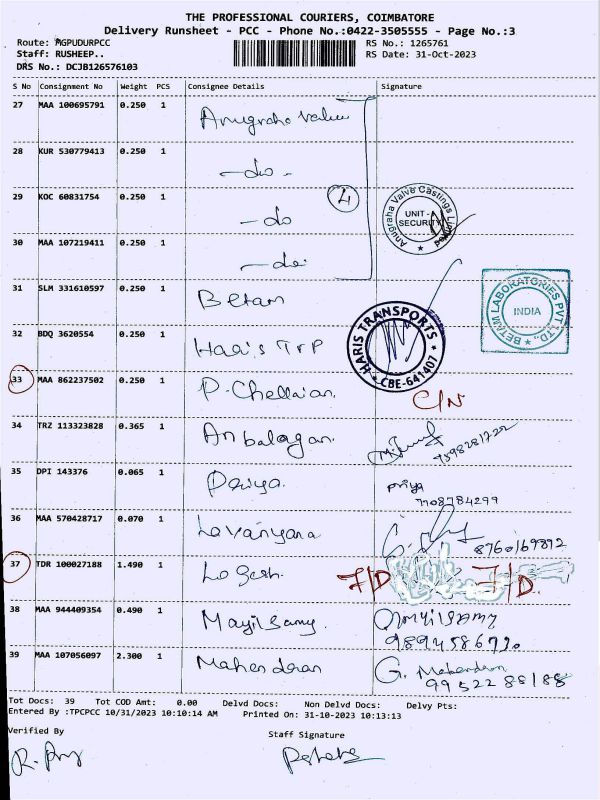 THE PROFESSIONAL COURIERS, COIMBATORE
Delivery Runsheet - PCC - Phone No.:0422-3505555 - Page No.:3
Route: MGPUDURPCC RS No.: 1265761
Staff: RUSHEEP.. RS Date: 31-Oct-2023
DRS No.: DCJB126576103
S No Consignment No Weight PCS Consignee Details Signature
27 MAA 100695791 0.250 1 Anugraha Valve
28 KUR 530779413 0.250 1 -do-
4
29 KOC 60831754 0.250 1 -do
Anugraha Valve Castings Limited
UNIT-
SECURITY
30 MAA 107219411 0.250 1 -do-
31 SLM 331610597 0.250 1 Betam
BETAM LABORATORIES PVT.LTD.,
INDIA
32 BDQ 3620554 0.250 1 Haris TrP
HARIS TRANSPORTS
CBE-641407
33 MAA 862237502 0.250 1 P. Chellaian. C/N
34 TRZ 113323828 0.365 1 Anbalagan.
35 DPI 143376 0.065 1 Priya. priya
7708784299
36 MAA 570428717 0.070 1 Lavanyana
8760169892
37 TDR 100027188 1.490 1 Logesh. 7/D 7/D.
38 MAA 944409354 0.490 1 Mayilsamy.
39 MAA 107056097 2.300 1 Mahendran G. Mahendran
99522 88188
Tot Docs: 39 Tot COD Amt: 0.00 Delvd Docs: Non Delvd Docs: Delvy Pts:
Entered By :TPCPCC 10/31/2023 10:10:14 AM Printed On: 31-10-2023 10:13:13
Verified By Staff Signature